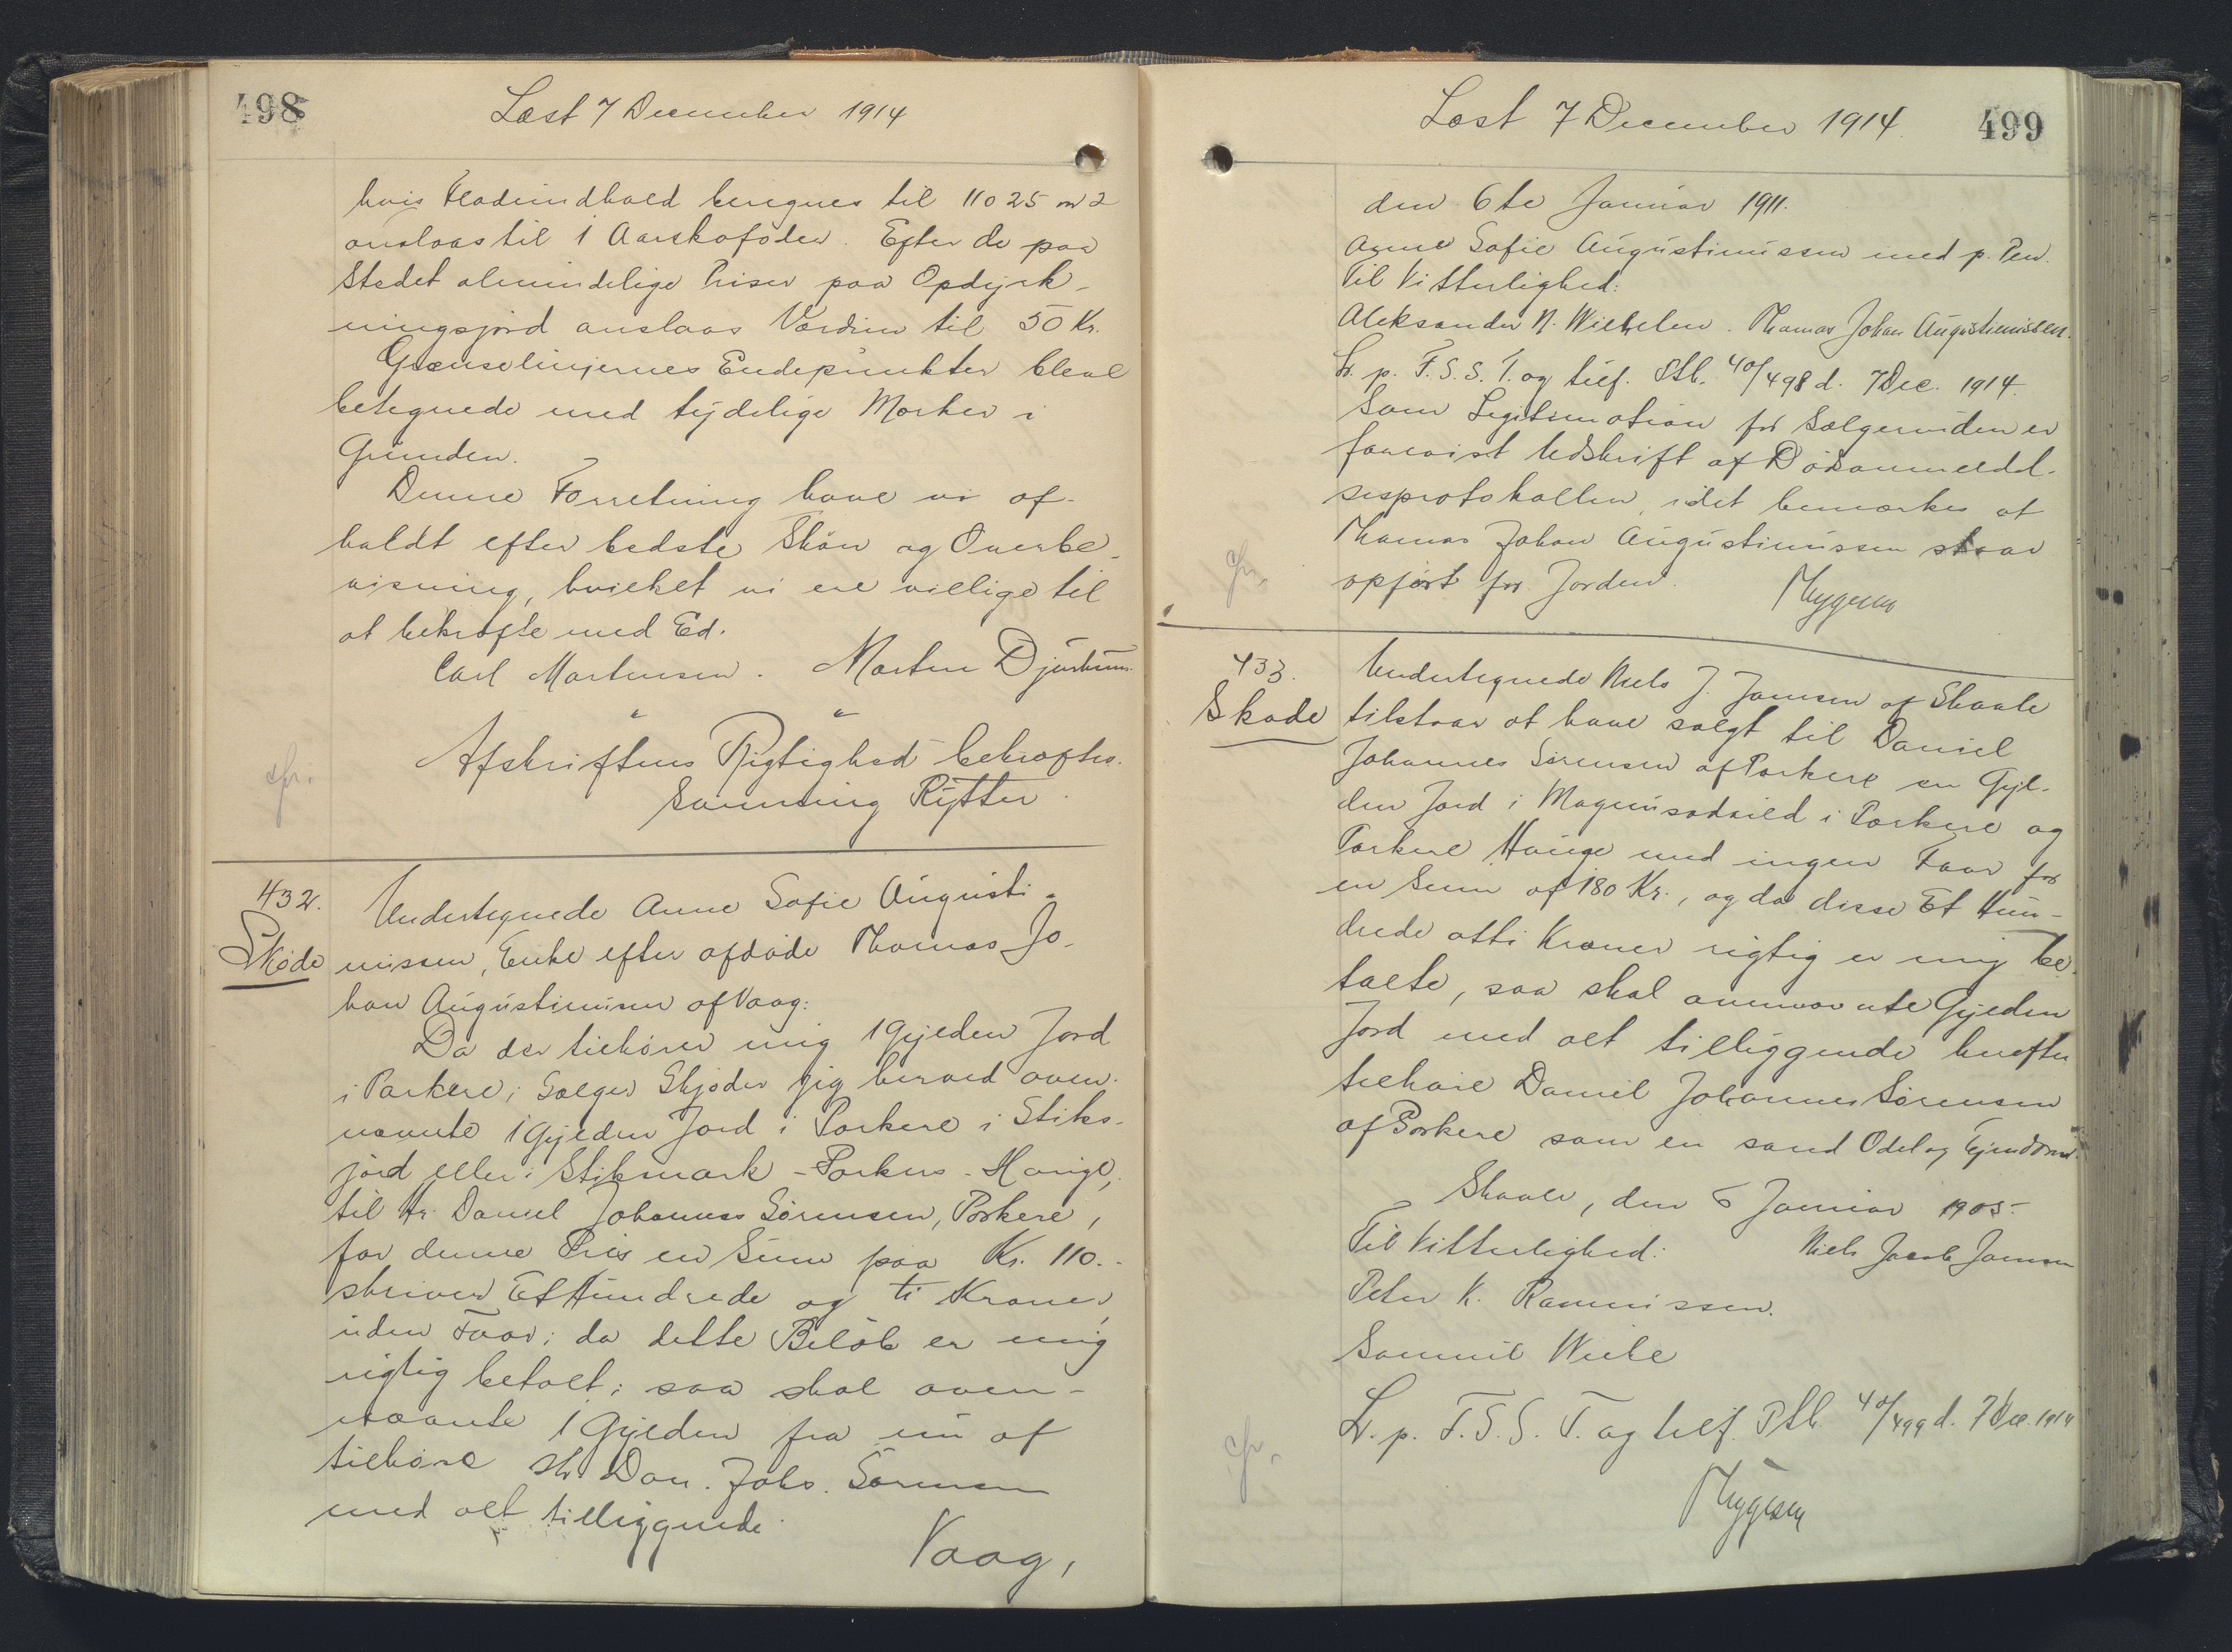 498
Læst 7 December 1914
hvis Fladeindhold beregnes til 11025 m2
anslaas til 1 Aarskofoder. Efter de paa
Stedet almindelige Priser paa Opdyrk-
ningsjord anslaas Værdien til 50 Kr.
Grænselinjernes Endepunkter bleve
betegnede med tydelige Mærker i
Grunden.
Denne Forretning have vi af-
holdt efter bedste Skøn og Overbe-
visning, hvilket vi ere villige til
at bekræfte med Ed.
Carl Mortensen. Morten Djurhuus.
Afskriftens Rigtighed bekræftes.
Samning Rytter.
cfr.
432.
Skøde
Undertegnede Anne Sofie Augusti-
nussen, Enke efter afdøde Thomas Jo-
han Augustinusen af Vaag:
Da der tilhører mig 1 Gylden Jord
i Porkere; Sælger Skjøder jeg herved oven-
nævnte 1 Gylden Jord i Porkere i Stiks-
jord eller i Stikmark - Porkers - Hauge,
til Hr. Daniel Johannes Sørensen, Porkere,
for denne Pris en Sum paa Kr. 110.-
skriver Et Hundrede og ti Kroner,
uden Faar; da dette Beløb er mig
rigtig betalt; saa skal oven-
nævnte 1 Gylden fra nu af
tilhøre Hr. Dan. Johs. Sørensen
med alt tilliggende.
Vaag,
Læst 7 December 1914.
499
den 6te Januar 1911.
Anne Sofie Augustinussen med p. Pen.
Til Vitterlighed:
Aleksander N. Wilhelm. Thomas Johan Augustinussen.
L. p. F. S. S. T. og tilf. Ptb. 40/498 d. 7 Dec. 1914.
Som Legitimation for Sælgerinden er
forevist Udskrift af Dødsanmeldel-
sesprotokollen, idet bemærkes at
Thomas Johan Augustinussen staar
opført for Jorden.
Mygesen
cfr.
433.
Skøde
Undertegnede Niels J. Joensen af Skaale
tilstaar at have solgt til Daniel
Johannes Sørensen af Porkere en Gyl-
den Jord i Magnusodnild i Porkere og
Porkere Hauge med ingen Faar for
en Sum af 180 Kr., og da disse Et Hun-
drede otti Kroner rigtig er mig be-
talte, saa skal ommævnte Gylden
Jord med alt tilliggende herefter
tilhøre Daniel Johannes Sørensen
af Porkere som en sand Odel og Ejendom.
Skaale, den 6 Januar 1905.
Til Vitterlighed: Niels Jacob Joensen
Peter K. Rasmussen.
Samuel Wiebe
L. p. F. S. S. T. og tilf. Ptb. 40/499 d. 7 Dec. 1914
Mygesen
cfr.